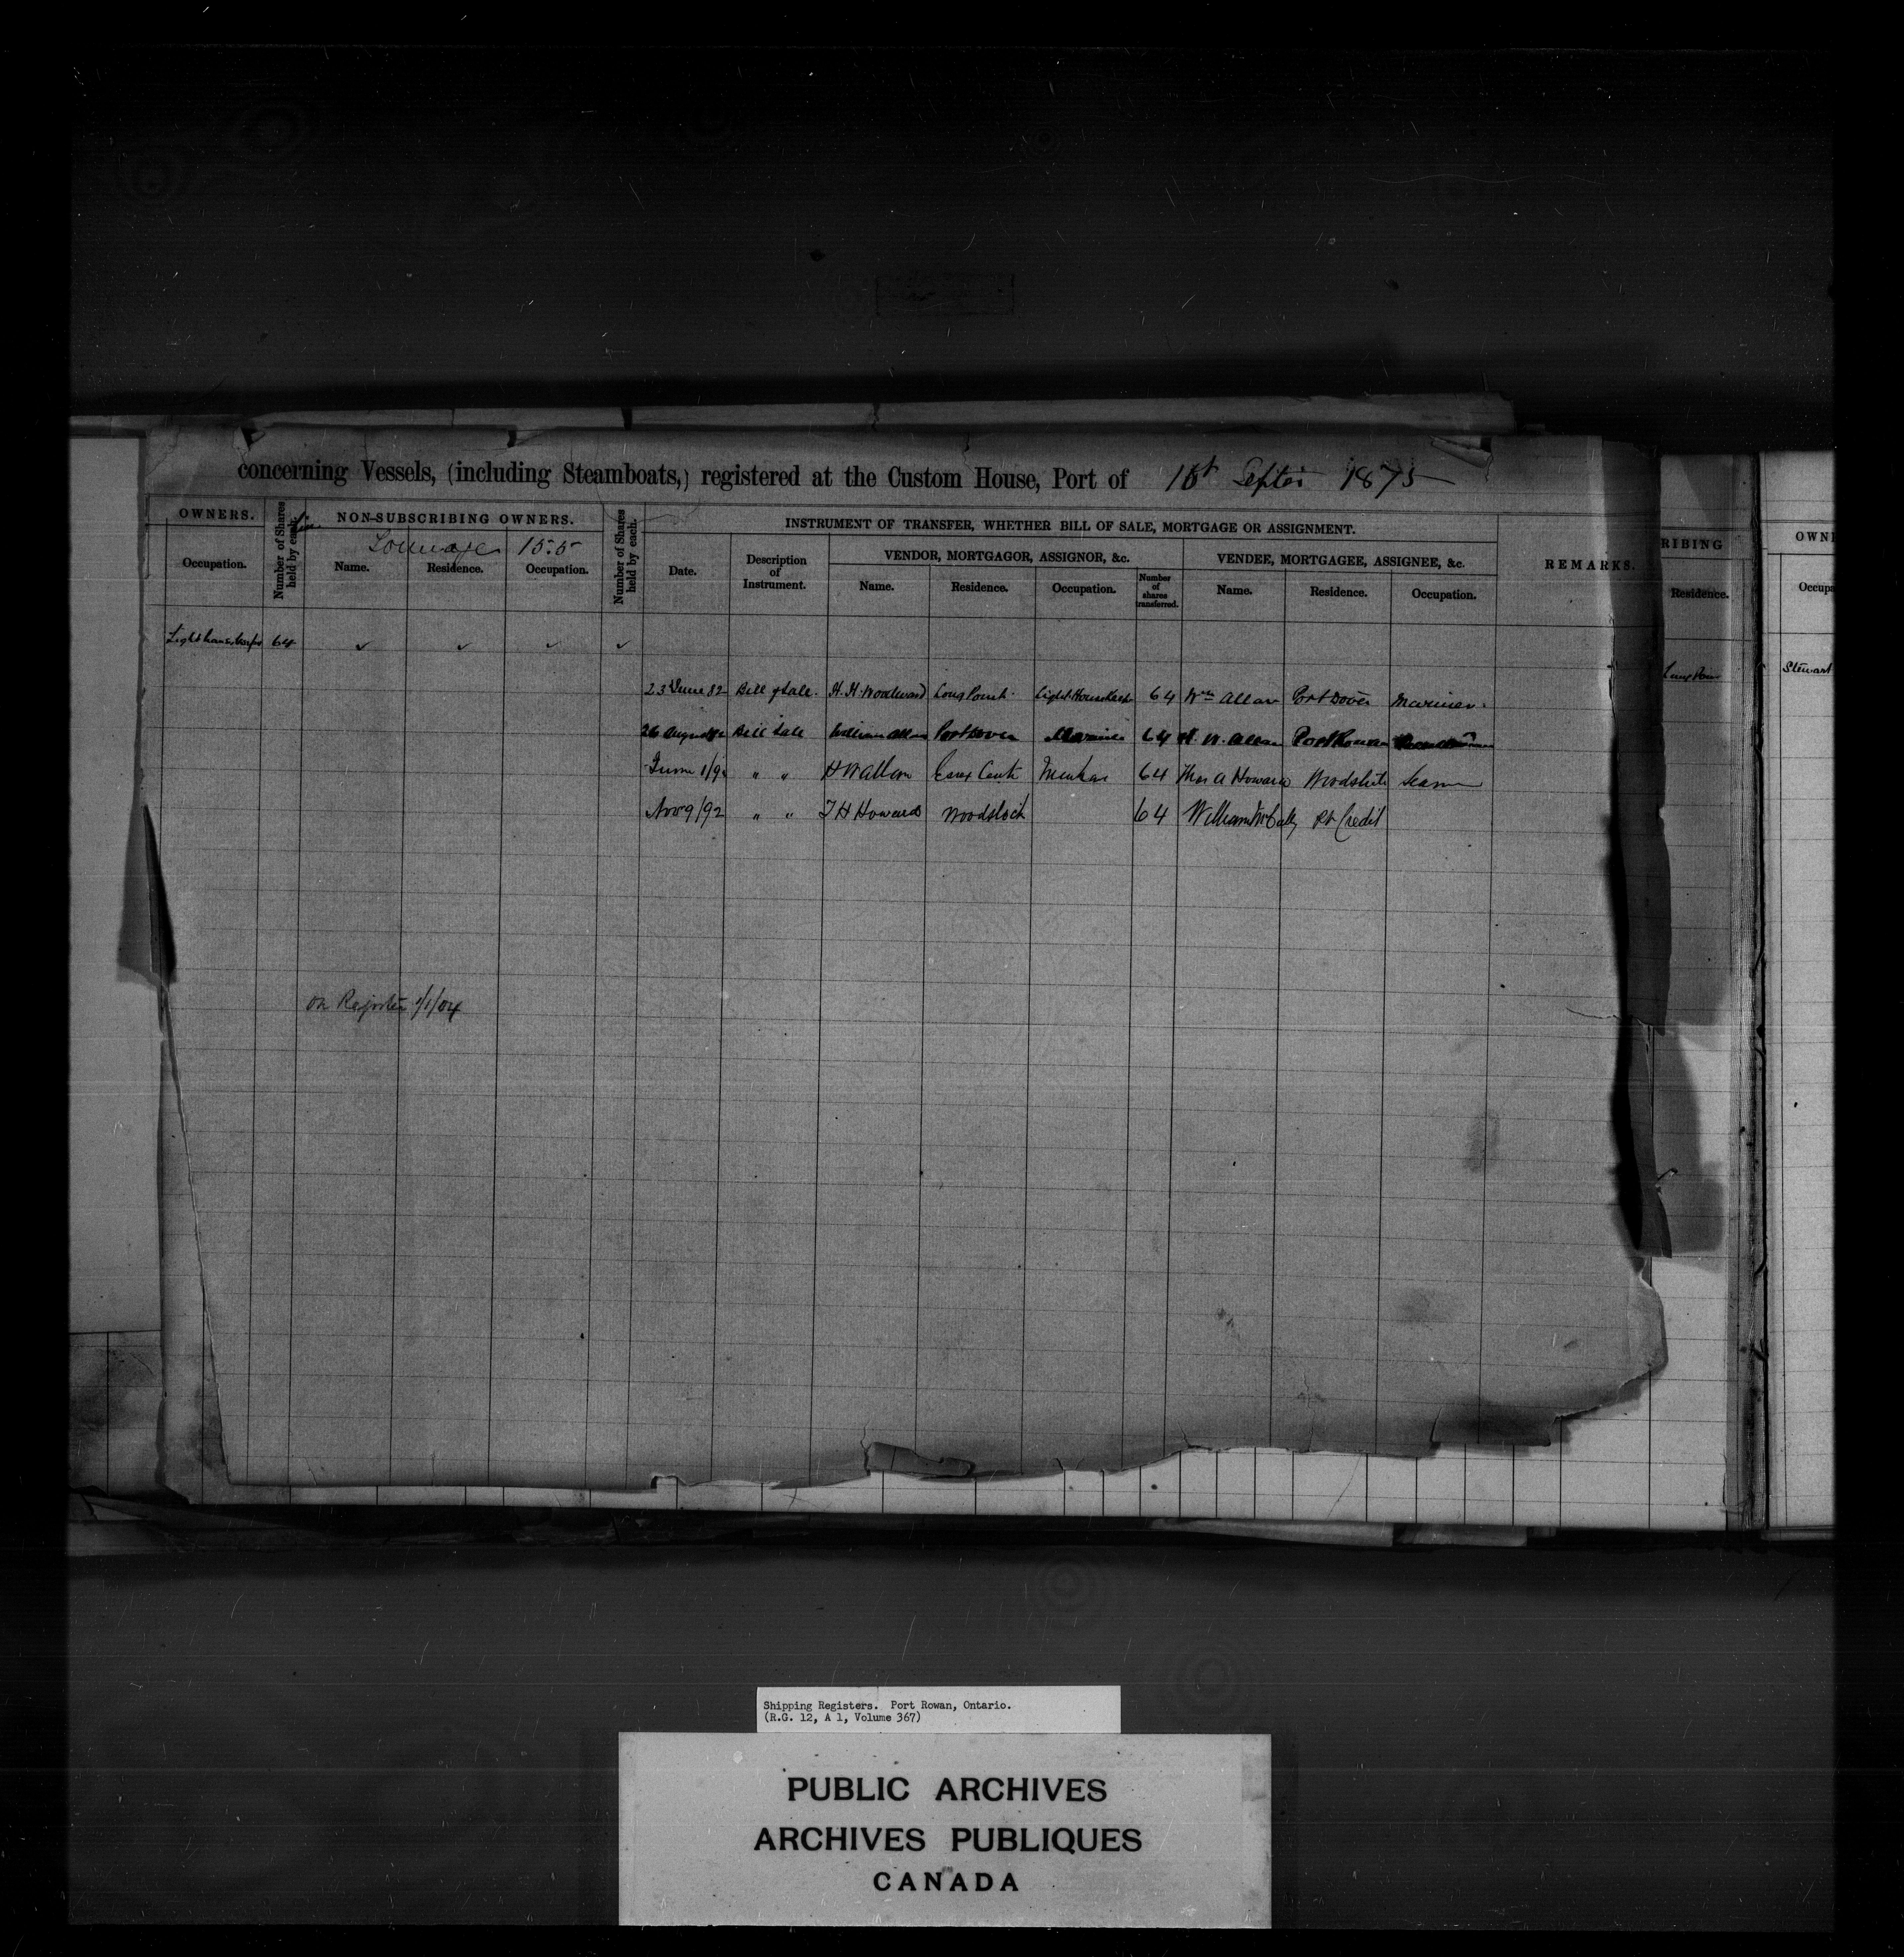 concerning Vessels, (including Steamboats,) registered at the Custom House, Port of 1st Septer 1875
OWNERS.
Occupation.
Number of Shares held by each.
NON-SUBSCRIBING OWNERS.
Tonnage 15.5
Name. Residence. Occupation.
Number of Shares held by each.
INSTRUMENT OF TRANSFER, WHETHER BILL OF SALE, MORTGAGE OR ASSIGNMENT.
Date.
Description of Instrument.
VENDOR, MORTGAGOR, ASSIGNOR, &c.
Name. Residence. Occupation. Number of shares transferred.
VENDEE, MORTGAGEE, ASSIGNEE, &c.
Name. Residence. Occupation.
REMARKS.
RIBING
Residence.
OWN
Occup
Light house keeper 64 ✓ ✓ ✓ ✓
Long Poin
Stewart
23d June 82 Bill of Sale. H. H. Woodward Long Point. Light House Keeper 64 Wm Allan Port Dover Mariner.
26 August Bill Sale William Allan Port Dover Mariner 64 H. W. Allan Port Rowan
June 1/9 " " H W Allan Essex Cent 64 Thos A Howard Woodstock Seaman
Nov 9/92 " " T H Howard Woodstock 64 William Pt Credit
on Register 1/1/04
Shipping Registers. Port Rowan, Ontario.
(R.G. 12, A 1, Volume 367)
PUBLIC ARCHIVES
ARCHIVES PUBLIQUES
CANADA